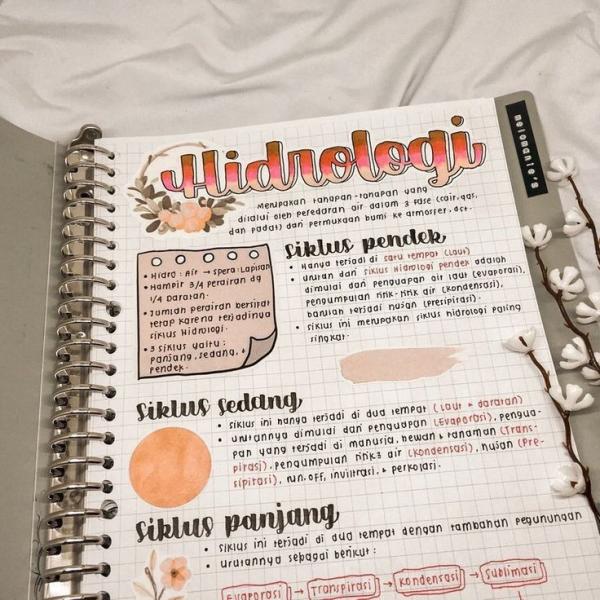 melomanie's
Hidrologi
Merupakan tahapan-tahapan yang
dilalui oleh peredaran air dalam 3 fase (cair, gas,
dan padat) dari permukaan bumi ke atmosfer, dst.
• Hidro : Air → Spera : Lapisan
• Hampir 3/4 perairan dg
1/4 daratan.
• Jumlah perairan bersifat
tetap karena terjadinya
siklus hidrologi.
• 3 siklus yaitu :
panjang, sedang, +
pendek.
Siklus pendek
• Hanya terjadi di satu tempat (laut)
• Urutan dari siklus hidrologi pendek adalah
dimulai dari penguapan air laut (evaporasi),
pengumpulan titik-titik air (kondensasi),
barulah terjadi hujan (presipirasi).
• siklus ini merupakan siklus hidrologi paling
singkat.
Siklus Sedang
• siklus ini hanya terjadi di dua tempat (laut + daratan)
• urutannya dimulai dari penguapan (Evaporasi), pengua-
pan yang terjadi di manusia, hewan + tanaman (Trans-
pirasi), pengumpulan titik2 air (kondensasi), hujan (Pre-
sipitasi), run off, inviltrasi, + perkolasi.
Siklus panjang
• siklus ini terjadi di dua tempat dengan tambahan pegunungan
• urutannya sebagai berikut :
Evaporasi → Transpirasi → Kondensasi → Sublimasi